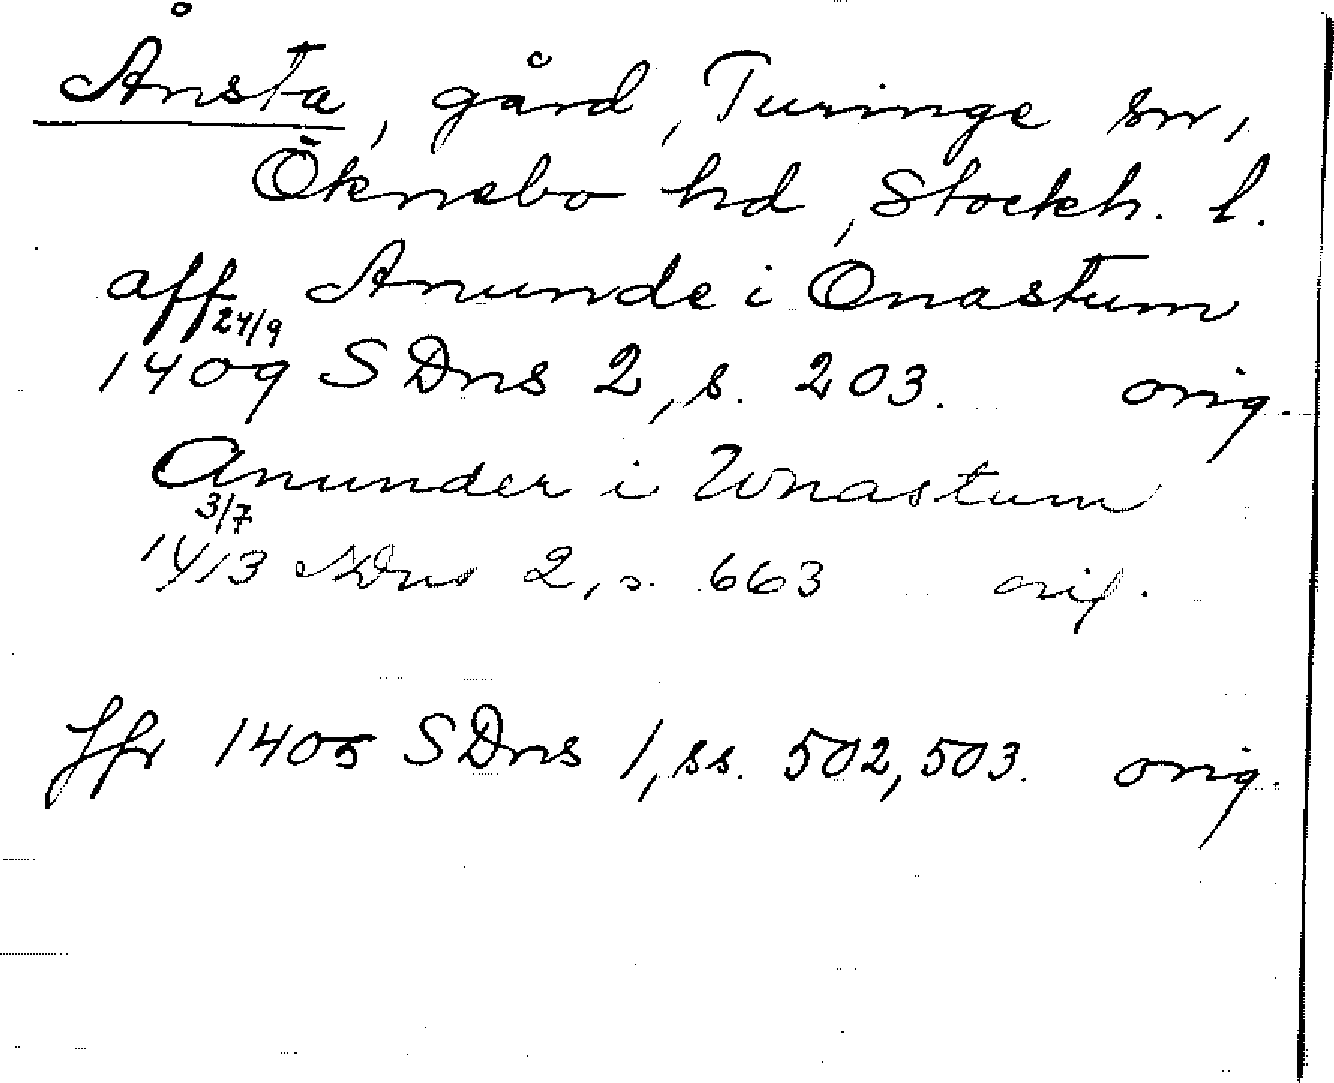 Ånsta, gård, Turinge sn,
Öknebo hd, Stockh. l.
aff Anunde i Onastum
24/9
1409 SDns 2, s. 203. orig.
Anunder i Wnastum
3/7
1413 SDns 2, s. 663 orig.
Jfr 1405 SDns 1, ss. 502, 503. orig.